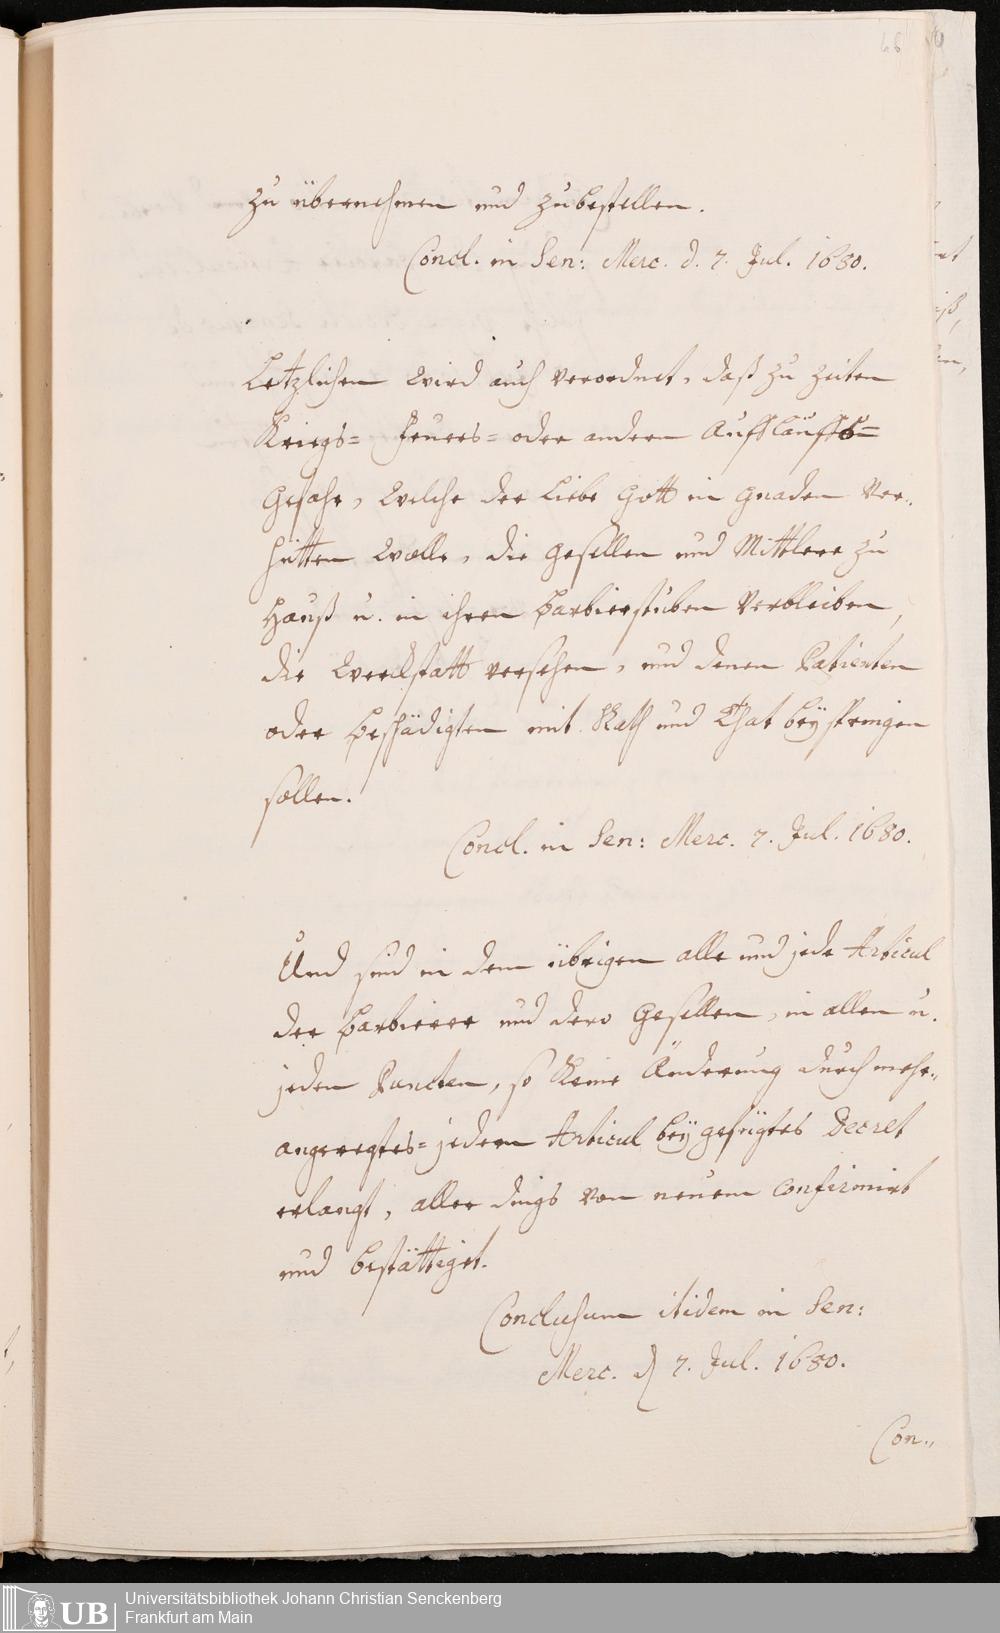 68
zu übernehmen und zubestellen.
Concl. in Sen: Merc. d. 7. Jul. 1680.
Letzlichen wird auch verordnet, daß zu zeiten
Kriegs= Feuers= oder andern Aufflauffs=
Gefahr, welche der Liebe Gott in Gnaden Ver-
hütten wolle, die Gesellen und Mittlere zu
Hauß u. in ihren Barbierstuben Verbleiben,
die Werckstatt versehen, und denen Patienten
oder Beschädigten mit Rath und That beÿspringen
sollen.
Concl. in Sen: Merc. 7. Jul. 1680.
Und sind in dem übrigen alle und jede Articul
der Barbierer und dero Gesellen, in allen u.
jeden Puncten, so keine Änderung durch mehr-
angeregtes= jedem Articul beÿgefügtes Decret
erlangt, aller dings von neuem confirmirt
und bestättiget.
Conclusum itidem in Sen:
Merc. d 7. Jul. 1680.
Con-
Universitätsbibliothek Johann Christian Senckenberg
UB Frankfurt am Main